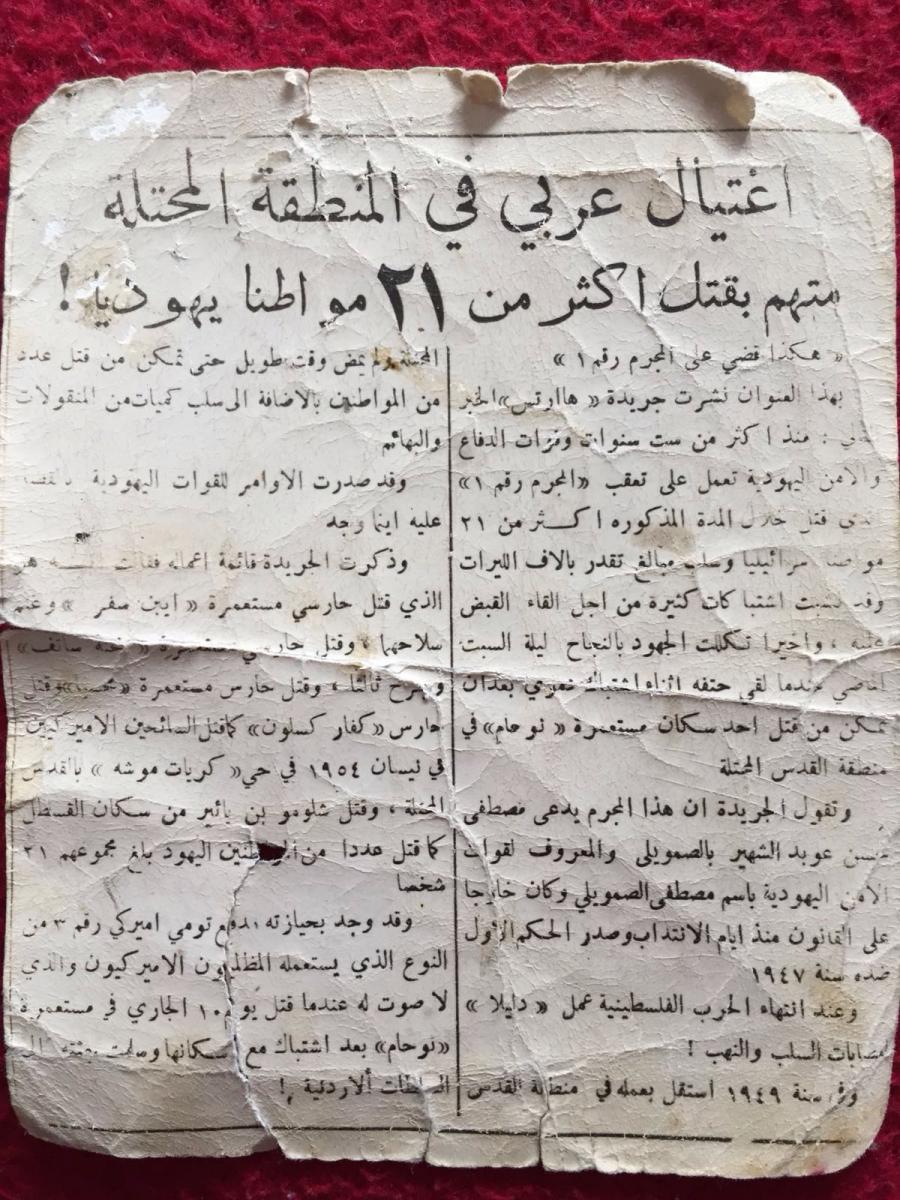 اغتيال عربي في المنطقة المحتلة
متهم بقتل اكثر من ٢١ مواطنا يهوديا !
« هكذا قضي على المجرم رقم ١ »
بهذا العنوان نشرت جريدة « هاارتس » الخبر
: منذ اكثر من ست سنوات وقوات الدفاع
والامن اليهودية تعمل على تعقب «المجرم رقم ١»
قتل خلال المدة المذكوره اكــثر من ٢١
مواطنا اسرائيليا وسلب مبالغ تقدر بالاف الليرات
وقد نشبت اشتباكات كثيرة من اجل القاء القبض
عليه ، واخيرا تكللت الجهود بالنجاح ليلة السبت
الماضي عندما لقي حتفه اثناء اشتباك بعد ان
تمكن من قتل احد سكان مستعمرة « نوحام» في
منطقة القدس المحتلة
وتقول الجريدة ان هذا المجرم يدعى مصطفى
عوبد الشهير بالصمويلي والمعروف لقوات
الامن اليهودية باسم مصطفى الصمويلي وكان خارجا
على القانون منذ ايام الانتداب وصدر الحكم الاول
ضده سنة ١٩٤٧
وعند انتهاء الحرب الفلسطينية عمل « دليلا »
لعصابات السلب والنهب !
وفي سنة ١٩٤٩ استقل بعمله في منطقة القدس
المحتلة ولم يمض وقت طويل حتى تمكن من قتل عدد
من المواطنين بالاضافة الى سلب كميات من المنقولات
والبهائم
وقد صدرت الاوامر للقوات اليهودية
عليه اينما وجد
وذكرت الجريدة قائمة اعماله فقالت هو
الذي قتل حارسي مستعمرة « ايبن سفر » وغنم
سلاحهما ، وقتل مستعمرة
وجرح ثالثا ، وقتل حارس مستعمرة وقتل
حارس « كفار كسلون» كما قتل السائحين الاميركيين
في نيسان ١٩٥٤ في حي « كريات موشه » بالقدس
المحتلة ، وقتل شلومو بن يائير من سكان القسطل
كما قتل عددا من المواطنين اليهود بلغ مجموعهم ٢١
شخصا
وقد وجد بحيازته مدفع تومي اميركي رقم ٣ من
النوع الذي يستعمله المظليون الاميركيون والذي
لا صوت له عندما قتل يوم ١٠ الجاري في مستعمرة
«نوحام» بعد اشتباك مع سكانها وسلمت جثته الى
السلطات الاردنية !